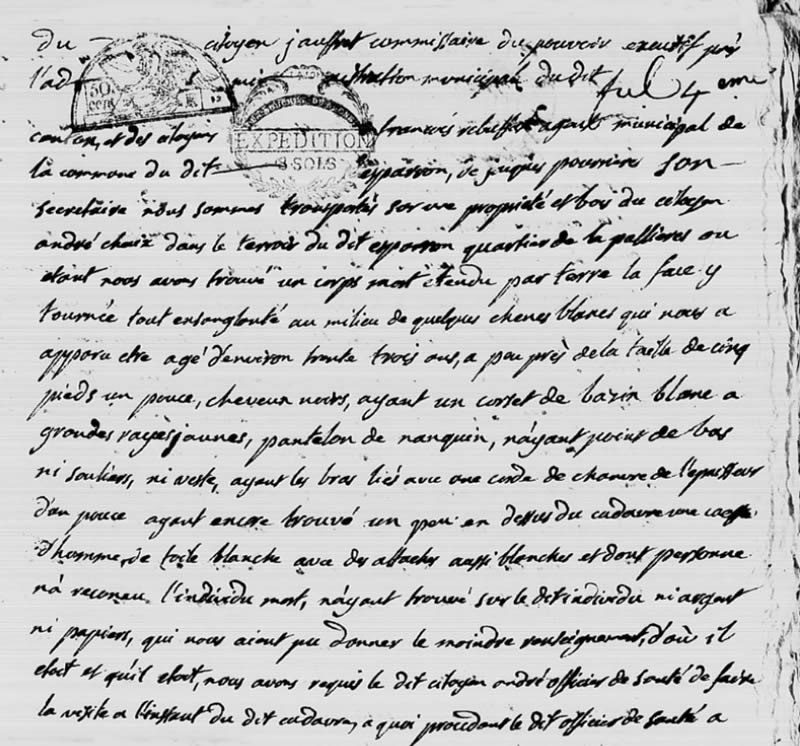 du citoyen jauffret commissaire du pouvoir executif près
l'administration municipale du dit ful 4 eme
50 cent
EXPEDITION
3 SOLS
canton, et des citoyens françois rebuffat agent municipal de
la commune du dit esparron, de jaques pourriere son
secretaire nous sommes transportés sur une propriété et bois du citoyen
andré chaix dans le terroir du dit esparron quartier de la pallieres ou
etant nous avons trouvé un corps mort etendu par terre la face y
tournée tout ensanglonté au milieu de quelques chenes blancs qui nous a
apparu etre agé d'environ trente trois ans, a peu près de la taille de cinq
pieds un pouce, cheveux noirs, ayant un corset de bazin blanc a
grandes rayes jaunes, pantelon de nanquin, n'ayant point de bas
ni souliers, ni veste, ayant les bras liés avec une corde de chanvre de l'epaisseur
d'un pouce ayant encore trouvé un peu en dessus du cadavre une
d'homme, de toile blanche avec des attaches aussi blanches et dont personne
n'a reconeu l'individu mort, n'ayant trouvé sur le dit individu ni argent
ni papiers, qui nous aient pu donner le moindre renseignement, d'où il
etoit et qu'il etoit, nous avons requis le dit citoyen andré officier de santé de faire
la visite a l'instant du dit cadavre, a quoi procedant le dit officier de santé a